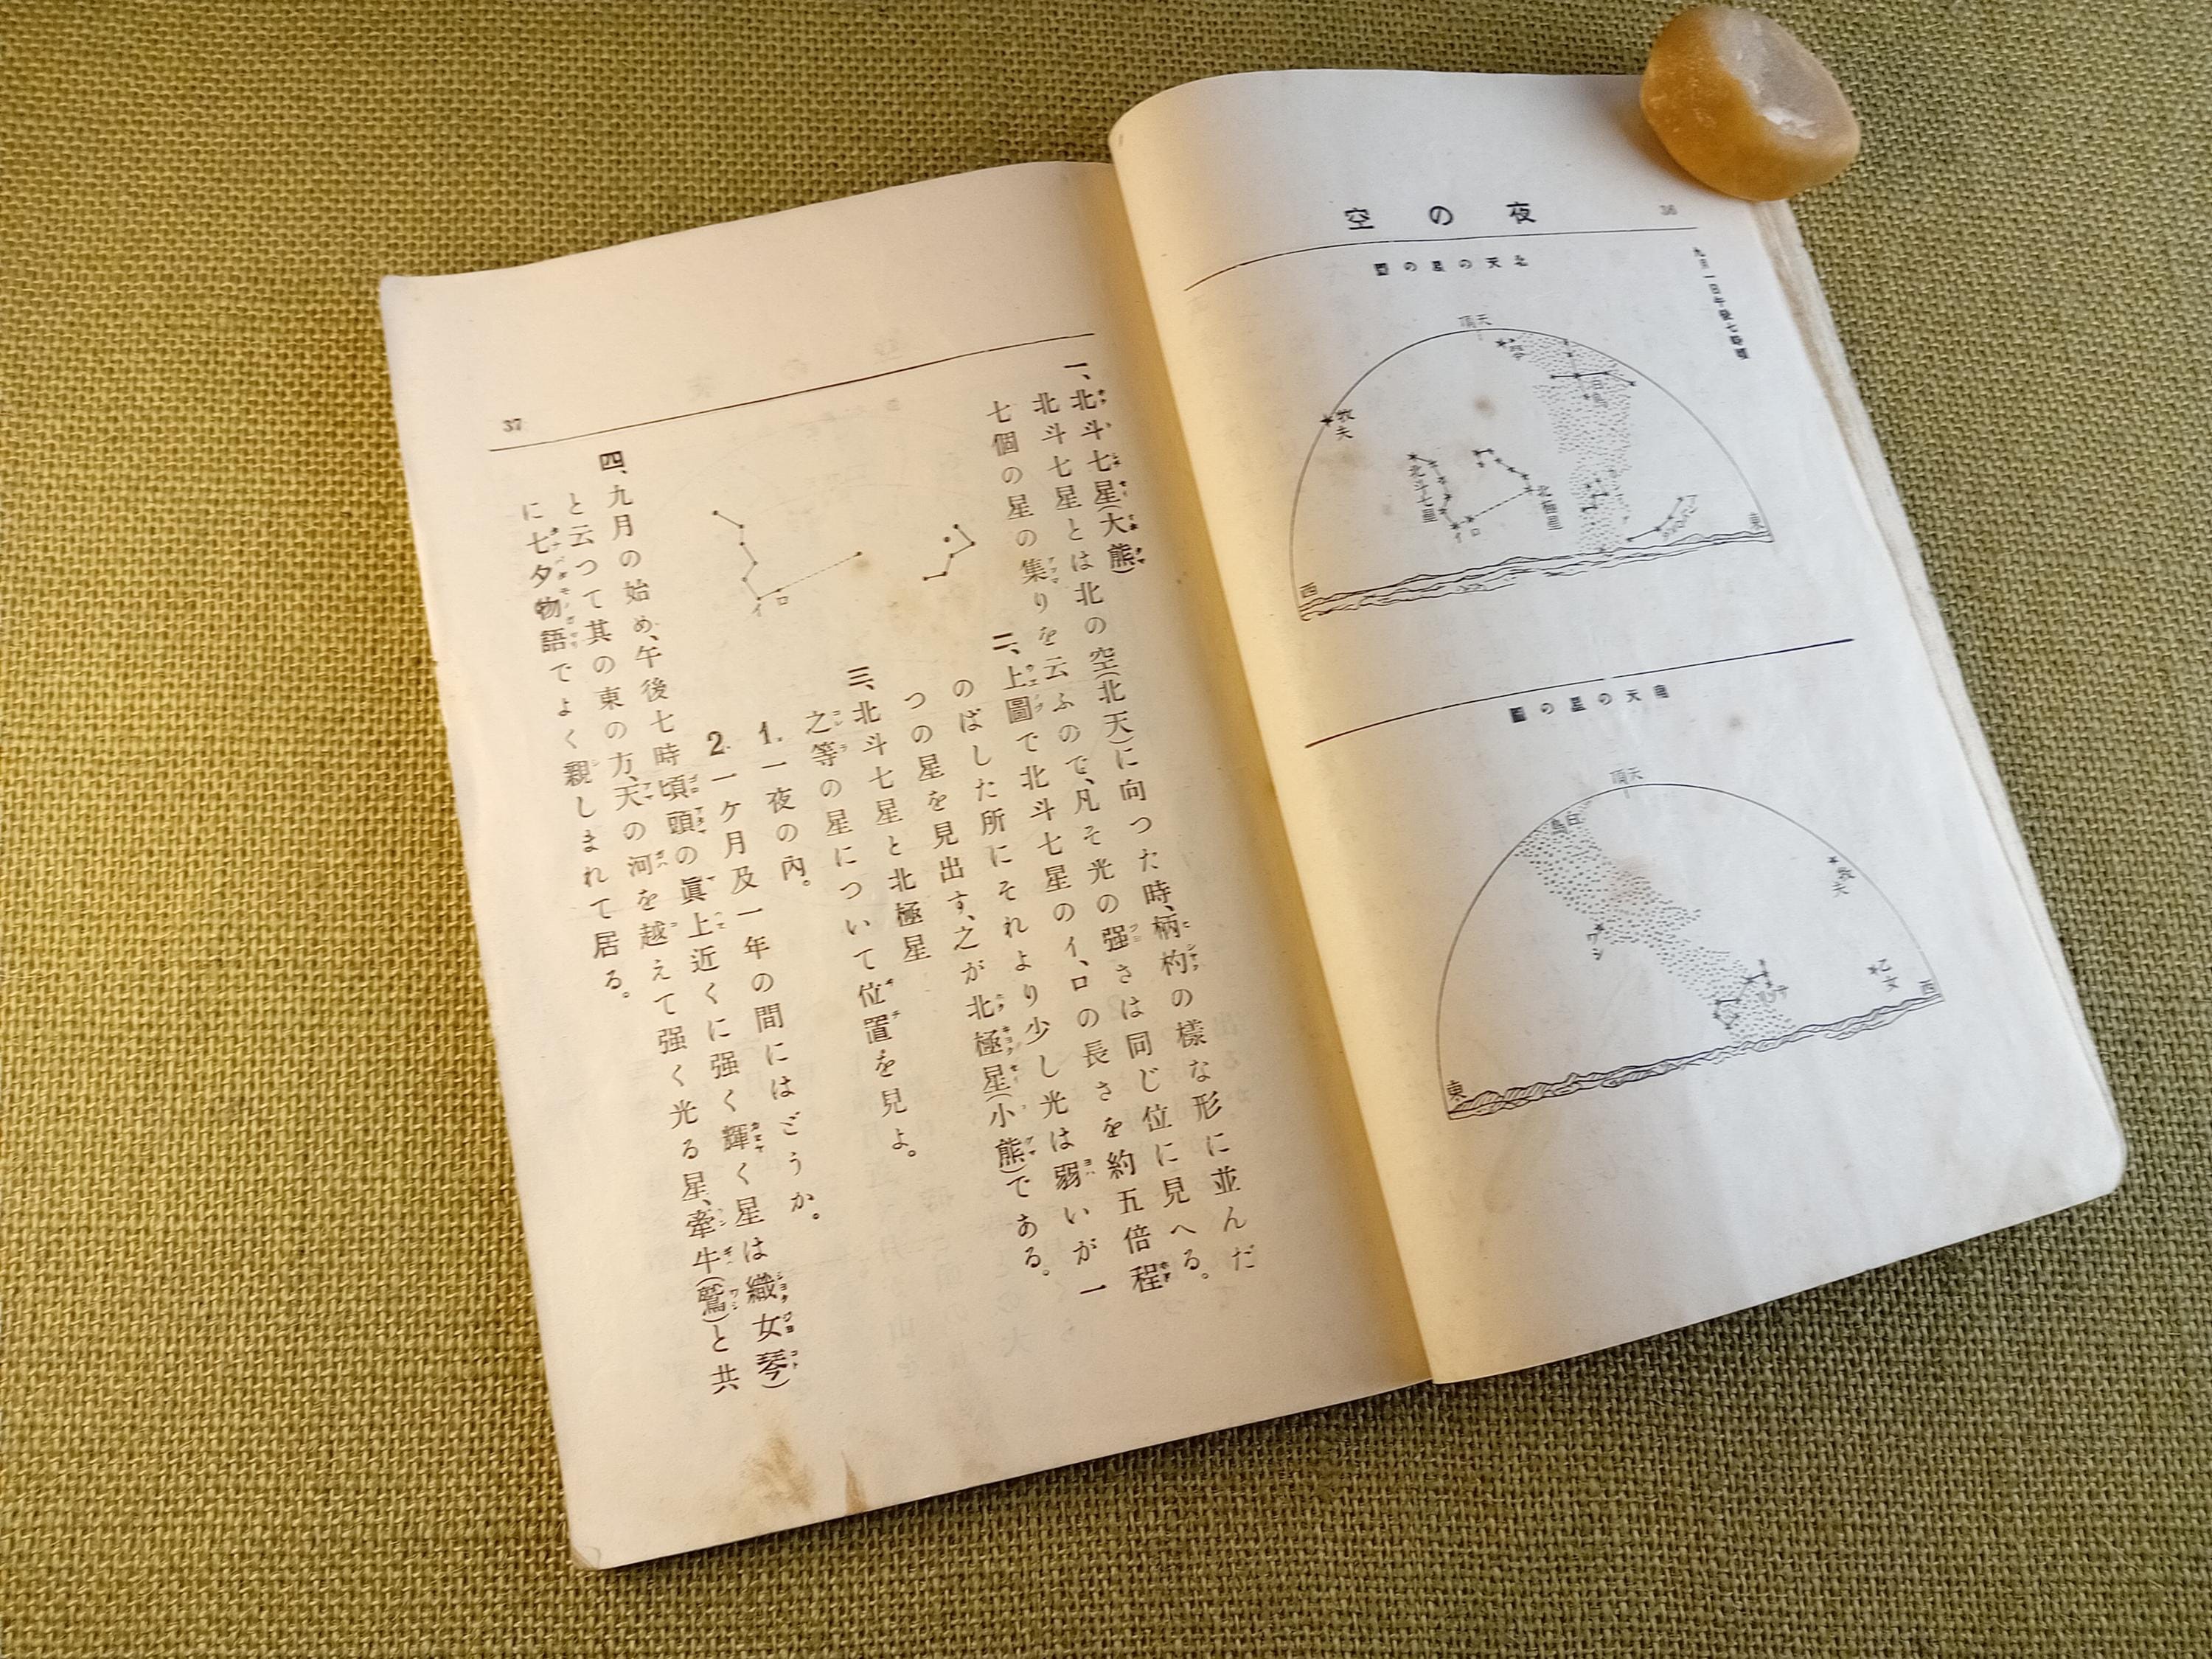 36
夜の空
九月一日午後七時頃
北天の星の圖
天頂
琴
白鳥
牧夫
北斗七星
北極星
イ
ロ
東
西
南天の星の圖
天頂
白鳥
牧夫
ワシ
乙女
西
東
37
一、北斗七星(大熊)
北斗七星とは北の空(北天)に向つた時、柄杓の樣な形に並んだ
七個の星の集りを云ふので、凡そ光の强さは同じ位に見へる。
二、上圖で北斗七星のイ、ロの長さを約五倍程
のばした所にそれより少し光は弱いが一
つの星を見出す、之が北極星(小熊)である。
三、北斗七星と北極星
之等の星について位置を見よ。
1. 一夜の內。
2. 一ケ月及一年の間にはどうか。
イ
ロ
四、九月の始め、午後七時頃頭の眞上近くに强く輝く星は織女琴)
と云つて其の東の方、天の河を越えて强く光る星、牽牛(鷲)と共
に七夕物語でよく親しまれて居る。